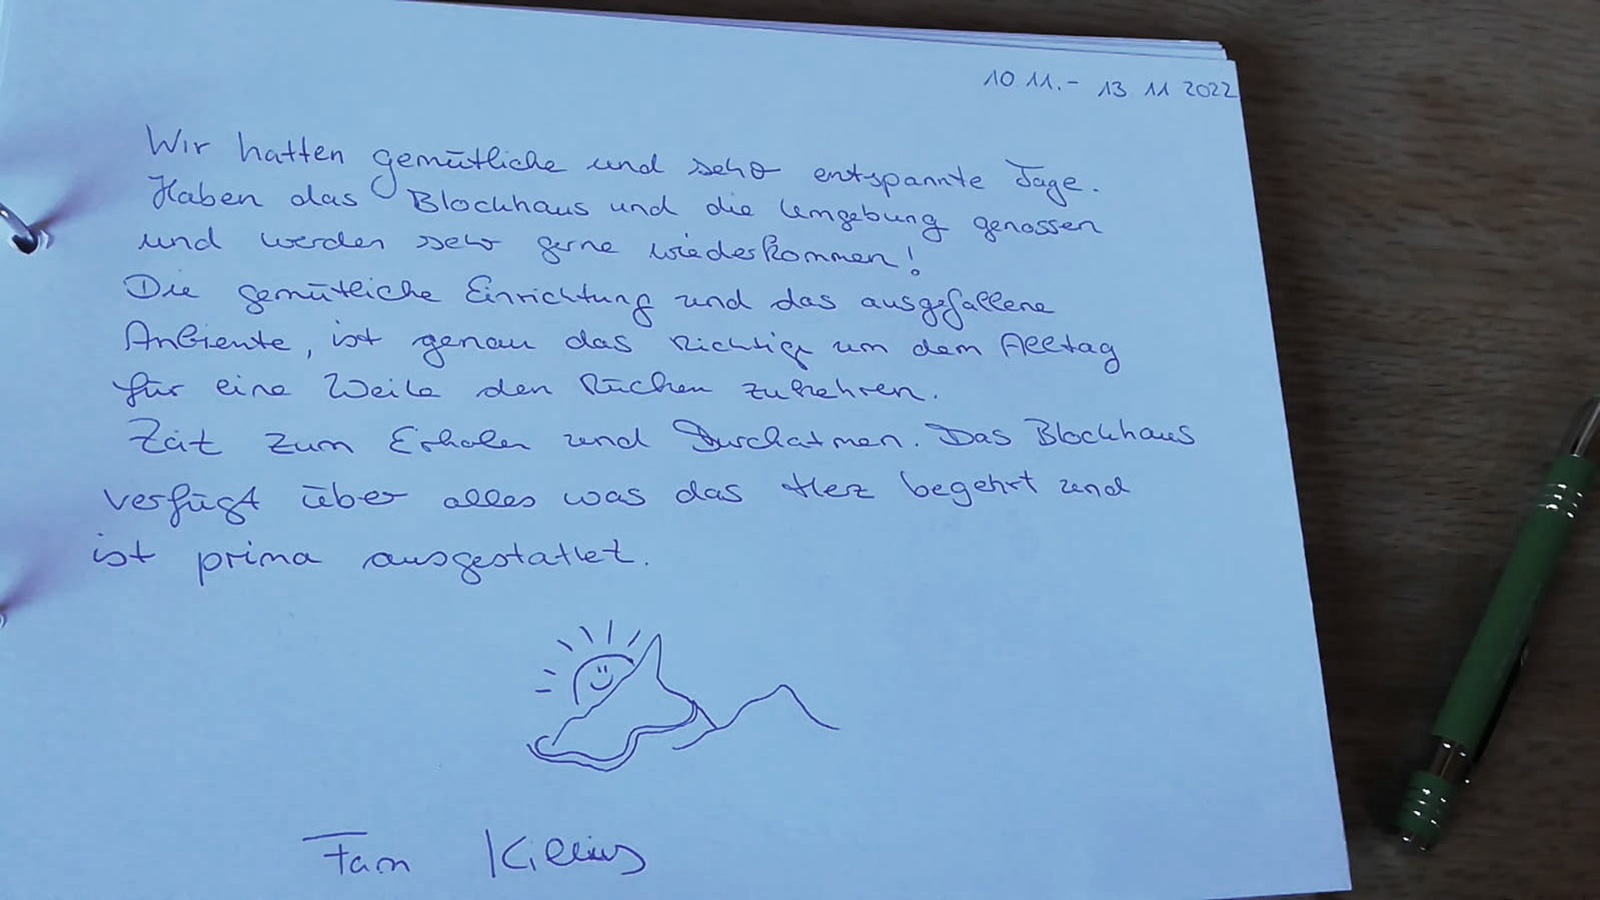 10 11.- 13 11 2022
Wir hatten gemütliche und sehr entspannte Tage.
Haben das Blockhaus und die Umgebung genossen
und werden sehr gerne wiederkommen!
Die gemütliche Einrichtung und das ausgefallene
Ambiente, ist genau das Richtige um dem Alltag
für eine Weile den Rücken zukehren.
Zeit zum Erholen und Durchatmen. Das Blockhaus
verfügt über alles was das Herz begehrt und
ist prima ausgestattet.
Fam